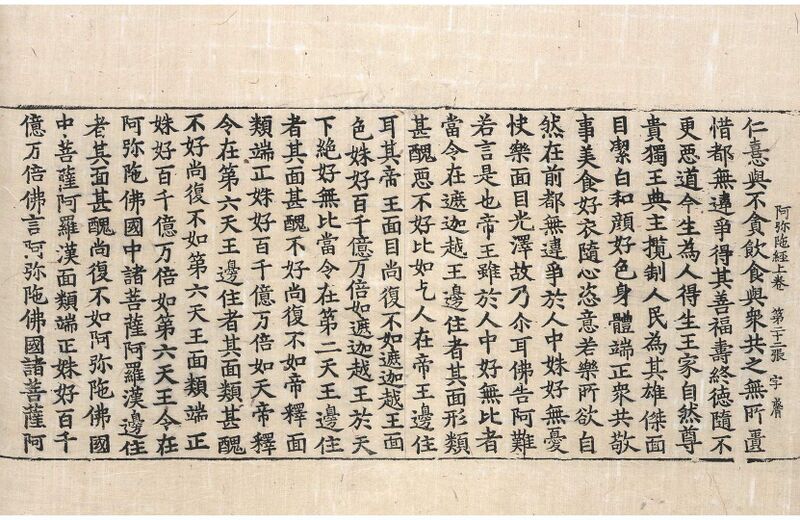 阿弥陁經上卷 第二十二張 字
仁意與不貪飲食與衆共之無所匱
惜都無違爭得其善福壽終德隨不
更惡道今生為人得生王家自然尊
貴獨王典主攬制人民為其雄傑面
目潔白和顔好色身體端正衆共敬
事美食好衣隨心恣意若樂所欲自
然在前都無違爭於人中姝好無憂
快樂面目光澤故乃尒耳佛告阿難
若言是也帝王雖於人中好無比者
當令在遮迦越王邊住者其面形類
甚醜惡不好比如乞人在帝王邊住
耳其帝王面目尚復不如遮迦越王面
色姝好百千億万倍如遮迦越王於天
下絶好無比當令在第二天王邊住
者其面甚醜不好尚復不如帝釋面
類端正姝好百千億万倍如天帝釋
令在第六天王邊住者其面類甚醜
不好尚復不如第六天王面類端正
姝好百千億万倍如第六天王令在
阿弥陁佛國中諸菩薩阿羅漢邊住
者其面甚醜尚復不如阿弥陁佛國
中菩薩阿羅漢面類端正姝好百千
億万倍佛言阿弥陁佛國諸菩薩阿